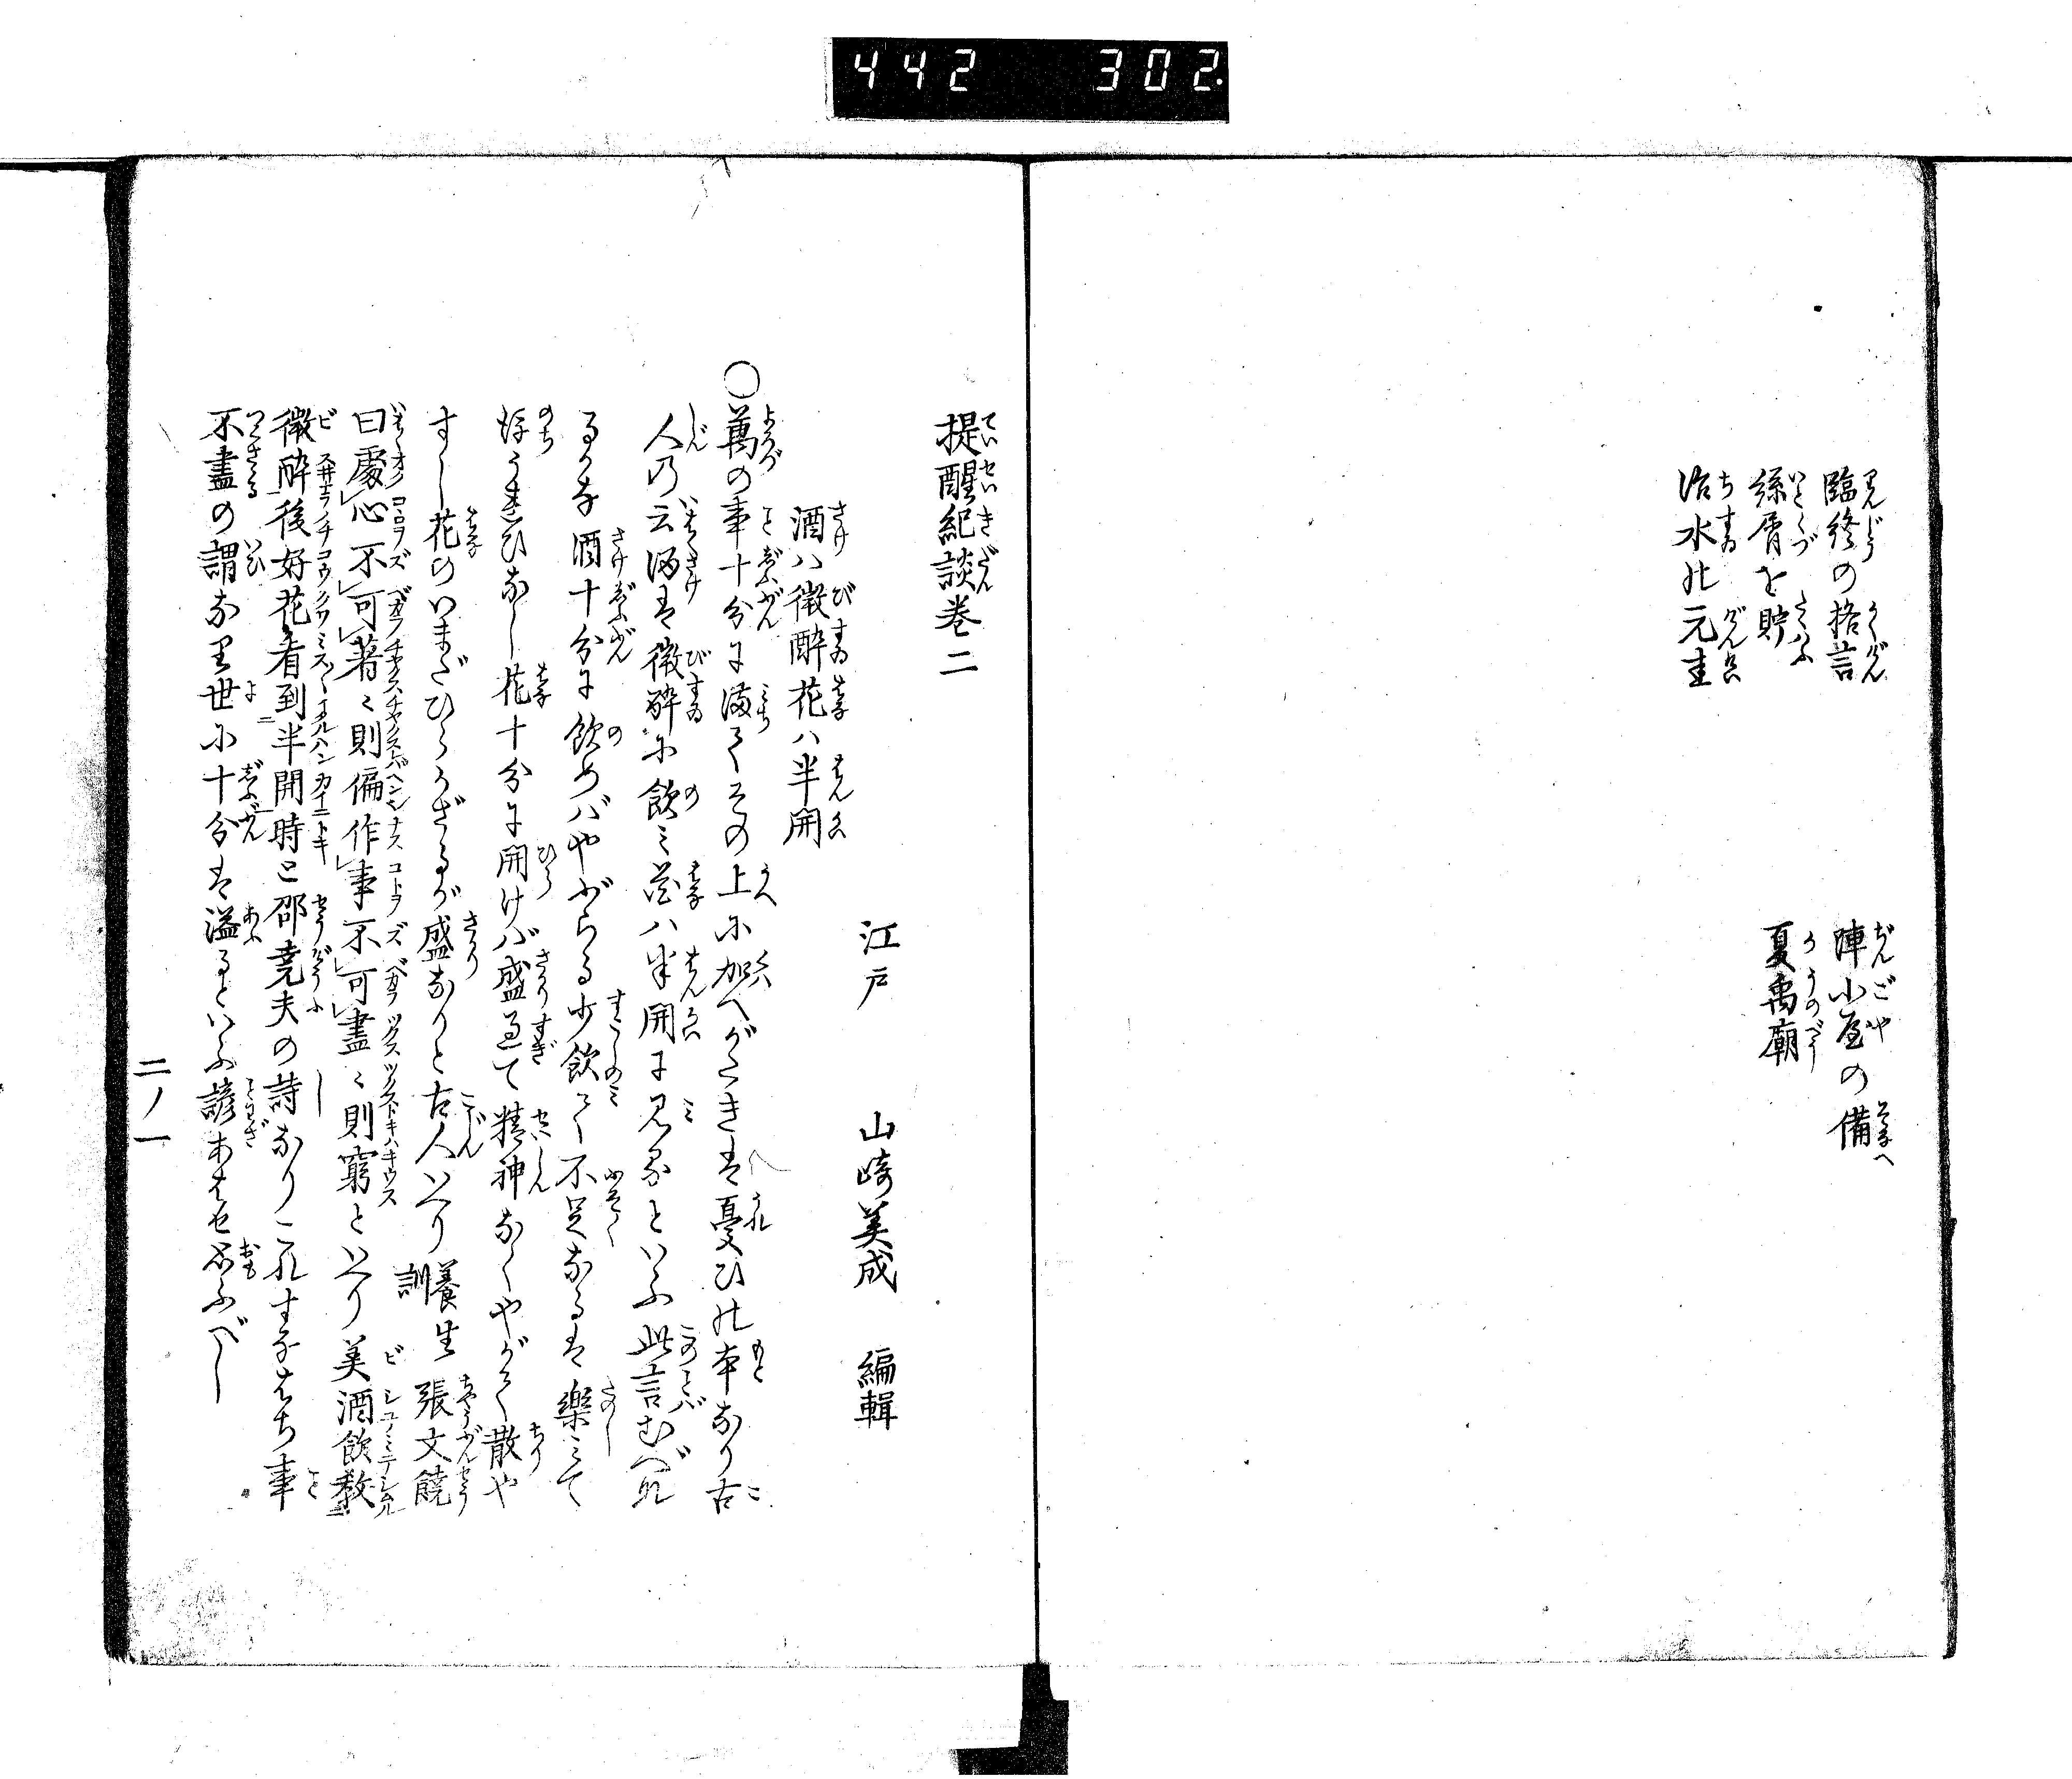 442 302
臨終の格言
絲屑を貯
治水の元圭
陣小屋の備
夏禹廟
提醒紀談巻二
江戸 山崎美成 編輯
酒ハ微酔花ハ半開
○萬の事十分に満てその上に加へがたきは憂ひの本なり古
人の云酒は微酔に飲ミ花ハ半開に見るといふ此言むべな
るかな酒十分に飲めバやぶらる少飲て不足なるは樂ミて
後うれひなし花十分に開けバ盛過て精神なくやがて散や
すし花のいまだひらかざるが盛なりと古人いへり 養生訓 張文饒
曰處心不可著〻則偏作事不可盡〻則窮といへり美酒飲教
微酔後好花看到半開時と邵堯夫の詩なりこれすなはち事
不盡の謂なり世に十分は溢るといふ諺あはせ思ふべし
二ノ一